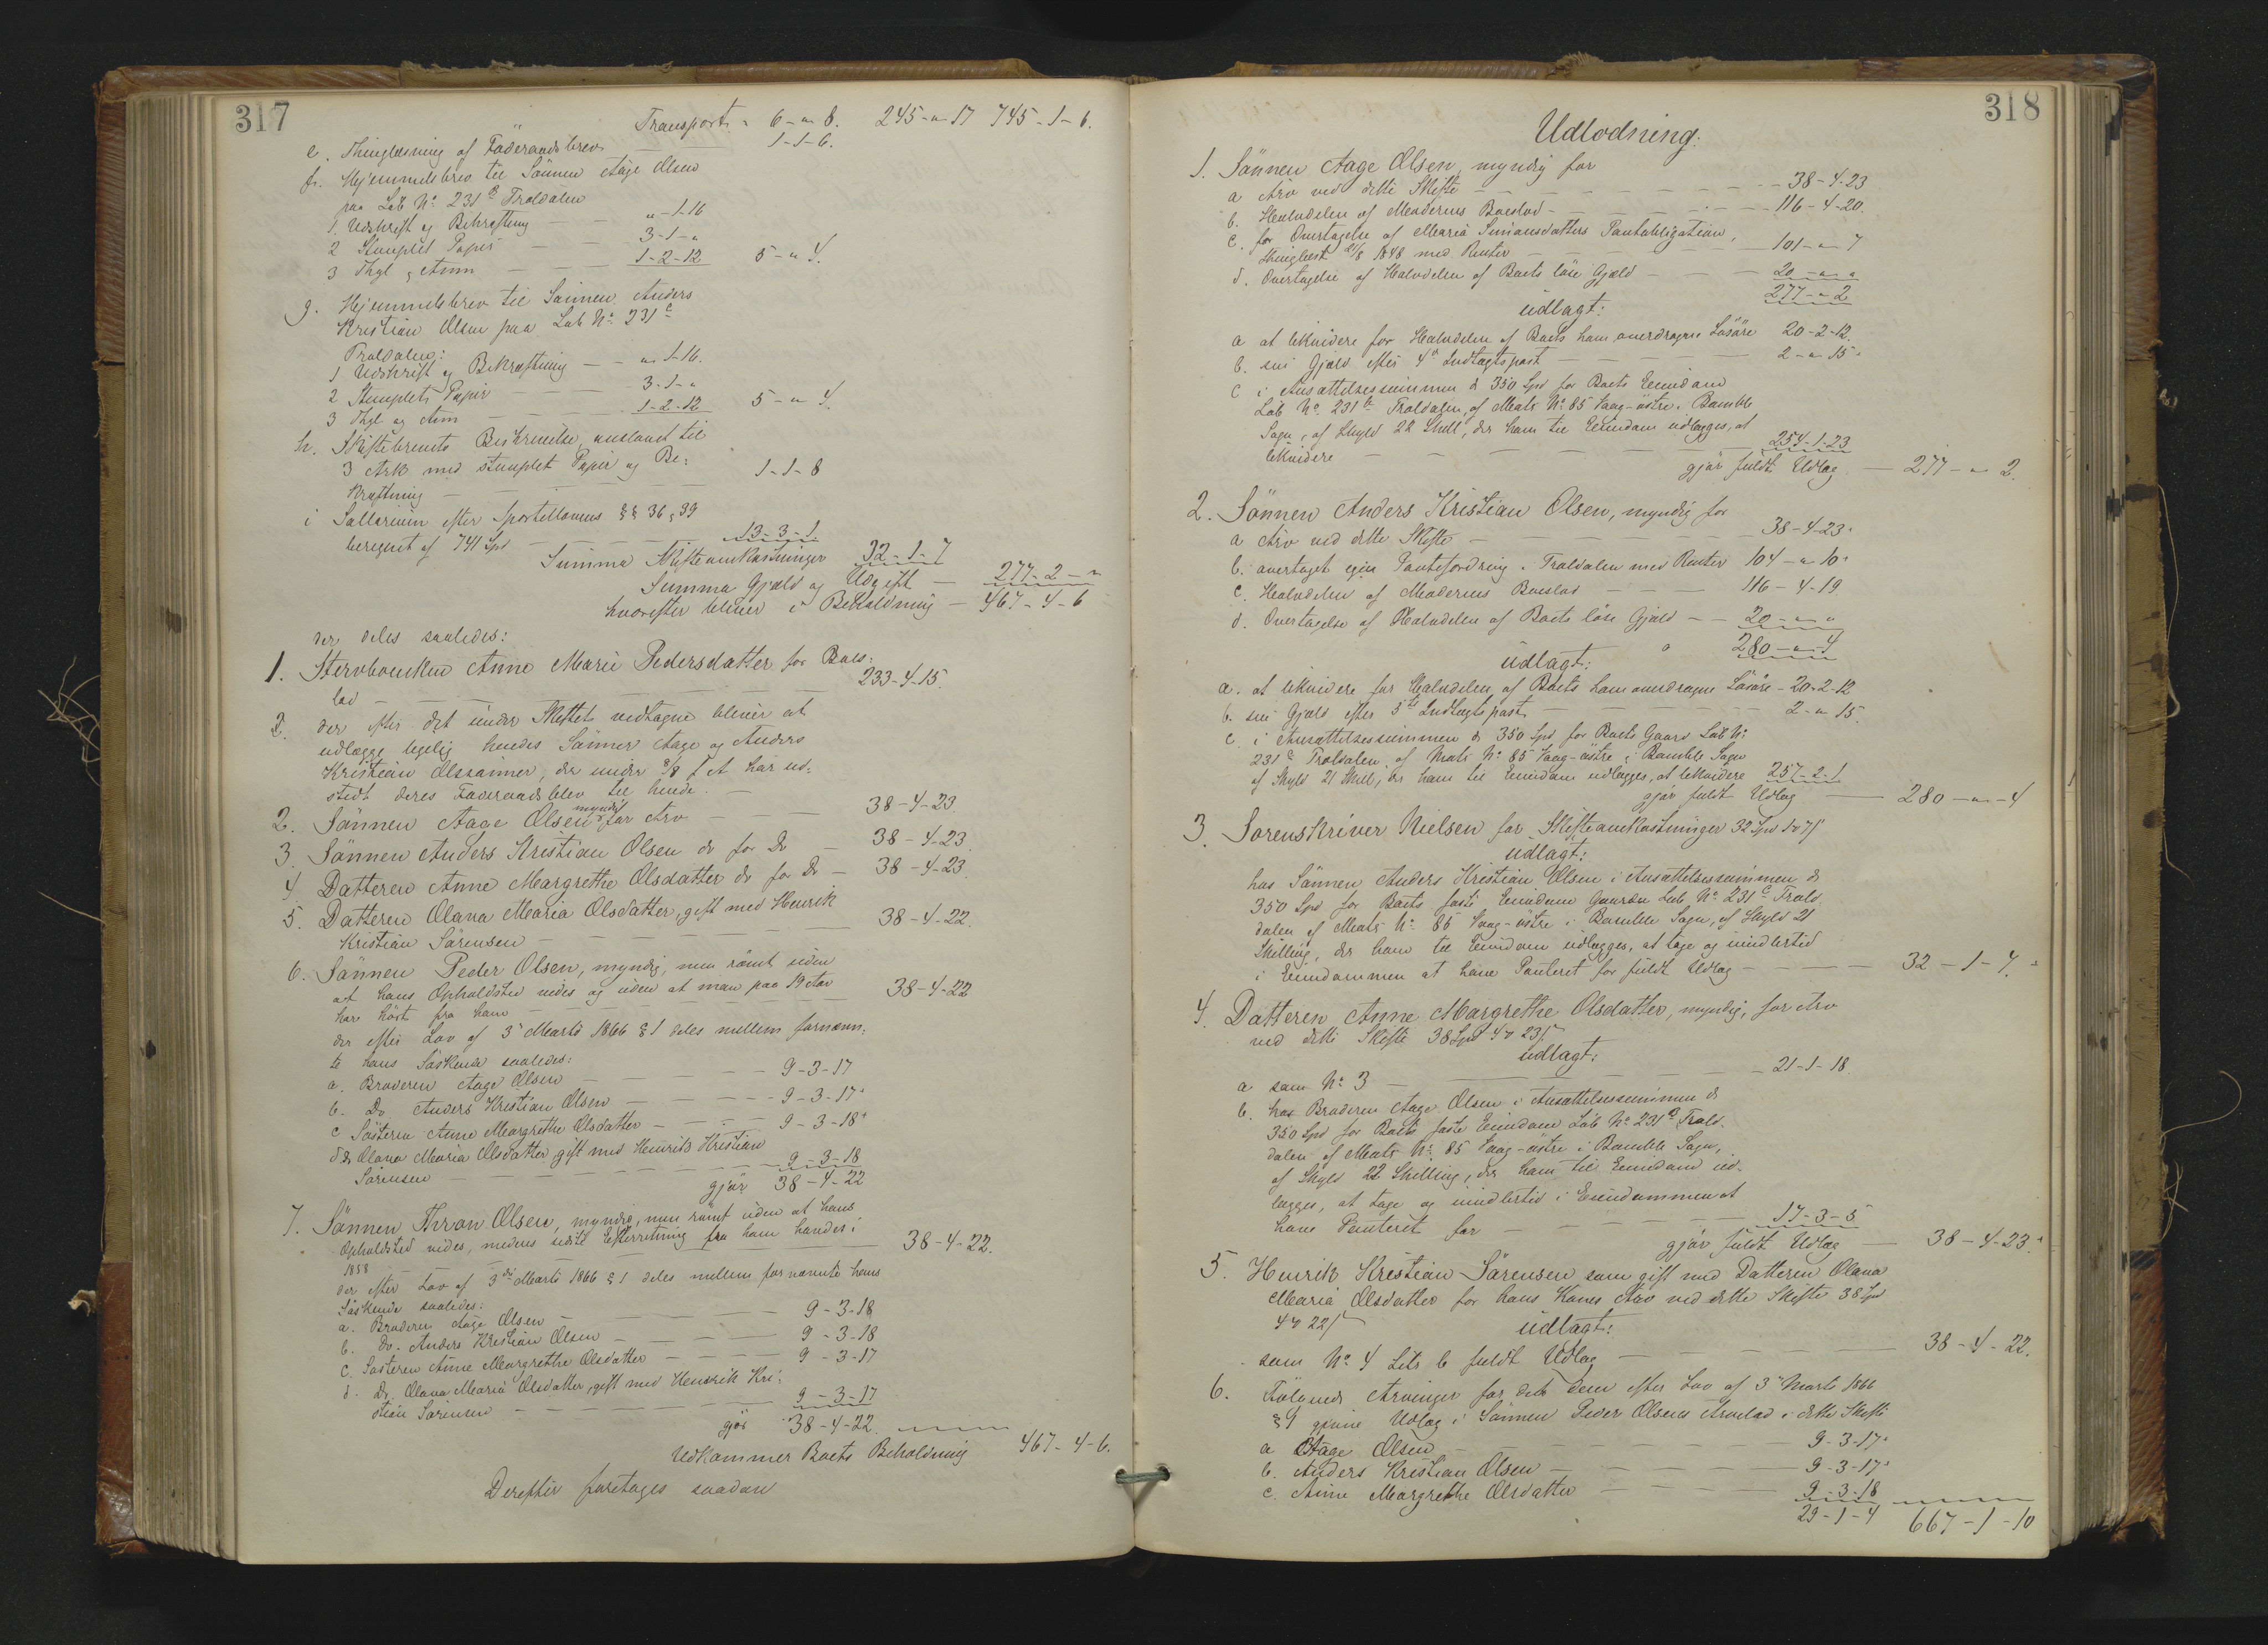 317
Transport " 6 - " 8. 245 - " 17 745 - 1 - 6.
e. Thinglæsning af Föderaadsbrev 1-1-6.
f. Hjemmelsbrev til Sönnen Aage Olsen
paa Løb No 231b Traldalen
1. Udskrift og Bekræftning — " - 1-16
2 Stemplet Papir — 3-1-"
3 Thgl & Ann — 1-2-12 5 - " 4.
g. Hjemmelsbrev til Sönnen Anders
Kristian Olsen paa Løb No 231c
Traldalen:
1 Udskrift og Bekræftning — " 1-16.
2 Stemplet Papir 3-1-"
3 Thgl og Ann 1-2-12 5 - " 4.
h. Skiftebrevets Beskrivelse, anslaaet til
3 Ark med stemplet Papir og Be-
kræftning — 1-1-8
i Sallarium efter Sportellovens §§ 36 & 39
beregnet af 741 Spd — 13-3-1.
Summa Skifteomkostninger 32-1-7
Summa Gjæld og Udgift — 277-2-"
hvorefter bliver i Beholdning — 467-4-6
der deles saaledes:
1. Stervboenken Anne Marie Pedersdatter for Boes-
lod — 233-4-15.
2. der efter det under Skiftet vedtagne bliver at
udlægge ligelig hendes Sönner Aage og Anders
Kristian Olssönner, der under 8/8 f A har ud-
stedt deres Föderaadsbrev til hende. —
2. Sönnen Aage Olsen myndig for Arv — 38-4-23.
3. Sönnen Anders Kristian Olsen do for Do — 38-4-23.
4 Datteren Anne Margrethe Olsdatter do for Do — 38-4-23.
5. Datteren Olava Maria Olsdatter, gift med Henrik
Kristian Sörensen — 38-4-22.
6. Sönnen Peder Olsen, myndig, men römt uden
at hans Opholdsted vides og uden at man paa 19 Aar
har hört fra ham — 38-4-22
der efter Lov af 3 Marts 1866 § 1 deles mellem fornævn-
te hans Söskende saaledes:
a. Broderen Aage Olsen — 9-3-17
b. Do Anders Kristian Olsen — 9-3-17
c Södteren Anne Margrethe Olsdatter — 9-3-18
d Do Olava Maria Olsdatter, gift med Henrik Kristian
Sörensen — 9-3-18
gjör 38-4-22
7. Sönnen Thron Olsen, myndig, men römt uden at hans
Opholdsted vides, medens sidste Efterretning fra ham havdes i
1858 — 38-4-22.
der efter Lov af 3die Marts 1866 § 1 deles mellem fornævnte hans
Söskende saaledes:
a. Broderen Aage Olsen — 9-3-18
b. Do. Anders Kristian Olsen — 9-3-18
c. Södteren Anne Margrethe Olsdatter — 9-3-17
d. Do. Olava Maria Olsdatter, gift med Henrik Kri-
stian Sörensen — 9-3-17
gjör 38-4-22.
Udkommer Boets Beholdning 467-4-6.
Derefter foretages saadan
318
Udlodning:
1. Sönnen Aage Olsen, myndig for
a Arv ved dette Skifte — 38-4-23
b. Halvdelen af Moderens Boeslod — 116-4-20.
c. for Overtagelse af Maria Simonsdatters Pantobligation,
thinglæst 21/8 1848 med Renter — 101 - " 7
d. Overtagelse af Halvdelen af Boets löse Gjæld — 20 - " "
277 - " 2
udlagt:
a at likvidere for Halvdelen af Boets ham overdragne Lösöre 20-2-12.
b. sin Gjæld efter 4de Indtægtspost — 2 - " 15
c i Ansættelsessummen d 350 Spd for Boets Eiendom
Løb No. 231b Traldalen, af Matr No 85 Vaag-östre i Bamble
Sogn, af Skyld 22 Skill, der ham til Eiendom udlægges, at
likvidere — 254-1-23
gjör fuldt Udlæg — 277 - " 2.
2. Sönnen Anders Kristian Olsen, myndig for
a Arv ved dette Skifte — 38-4-23
b. overtaget egen Pantefordring i Traldalen med Renter 104 - " 10
c. Halvdelen af Moderens Boeslod — 116-4-19.
d. Overtagelse af Halvdelen af Boets löse Gjæld — 20 - " "
280 - " 4
udlagt:
a. at likvidere for Halvdelen af Boets ham overdragne Lösöre - 20-2-12
b. sin Gjæld efter 5te Indtægtspost — 2 - " 15.
c. i Ansættelsessummen d 350 Spd for Boets Gaard Løb No
231c Traldalen, af Matr No 85 Vaag-östre i Bamble Sogn
af Skyld 21 Skill, der ham til Eiendom udlægges, at likvidere 257-2-1
gjör fuldt Udlæg — 280 - " - 4
3. Sorenskriver Nielsen for Skifteomkostninger 32 Spd 1 o 7 s
udlagt:
hos Sönnen Anders Kristian Olsen i Ansættelsessummen d
350 Spd for Boets faste Eiendom Gaarden Løb No 231c Trald-
dalen af Matr No 85 Vaag-östre i Bamble Sogn, af Skyld 21
Skilling, der ham til Eiendom udlægges, at tage og imidlertid
i Eiendommen at have Panteret for fuldt Udlæg — 32-1-7.
4. Datteren Anne Margrethe Olsdatter, myndig, for Arv
ved dette Skifte 38 Spd 4 o 23 s
udlagt:
a som No 3 — 21-1-18.
b. hos Broderen Aage Olsen i Ansættelsessummen d
350 Spd for Boets faste Eiendom Løb No 231b Trald-
dalen af Matr No. 85 Vaag-östre i Bamble Sogn,
af Skyld 22 Skilling, der ham til Eiendom ud-
lægges, at tage og imidlertid i Eiendommen at
have Panteret for — 17-3-5
gjör fuldt Udlæg — 38-4-23.
5. Henrik Kristian Sörensen som gift med Datteren Olava
Maria Olsdatter for hans Kones Arv ved dette Skifte 38 Spd
4 o 22 s udlagt:
som No 4 Litr b fuldt Udlæg — 38-4-22.
6. Fölgende Arvinger for det dem efter Lov af 3 Marts 1866
§ 1 givne Udlæg i Sönnen Peder Olsens Arvelod i dette Skifte
a Aage Olsen — 9-3-17
b. Anders Kristian Olsen — 9-3-17
c. Anne Margrethe Olsdatter — 9-3-18
29-1-4 667-1-10